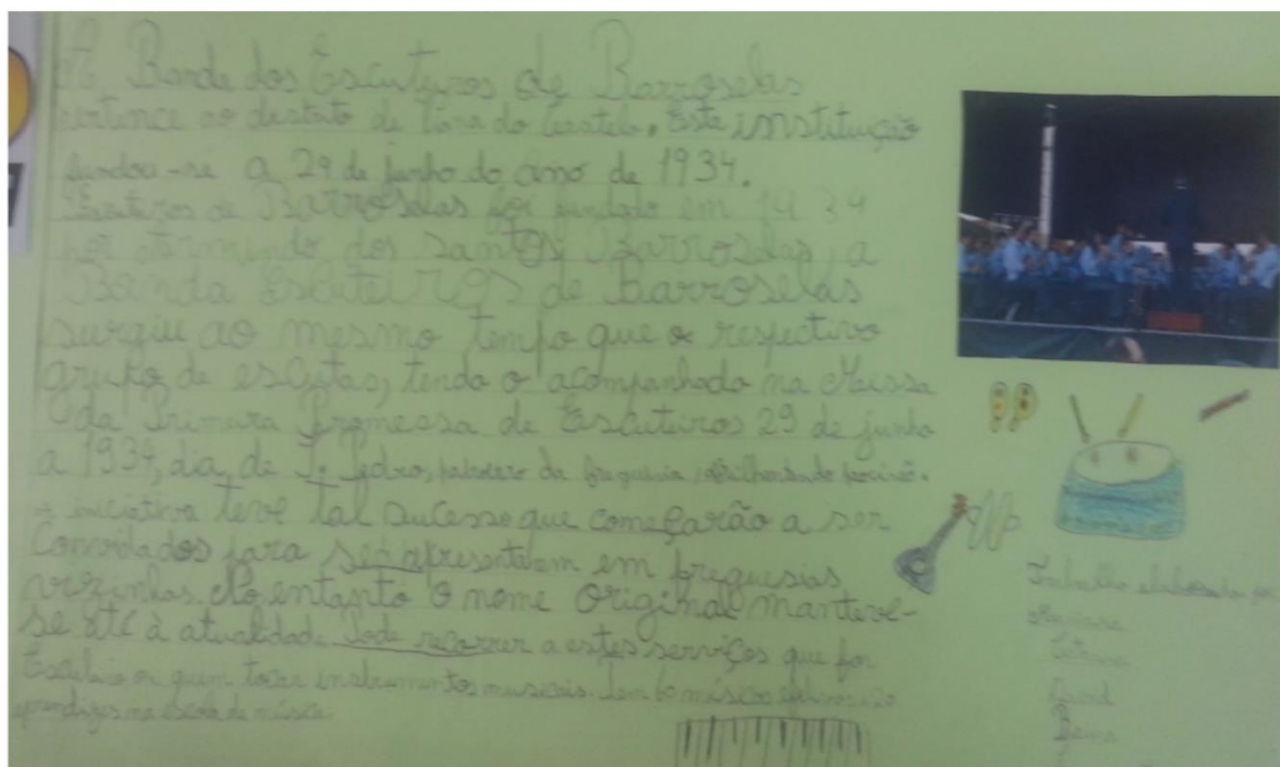 A Banda dos Escuteiros de Barroselas
pertence ao destrito de Viana do Castelo. Esta instituição
fundou-se a 29 de junho do ano de 1934.
Escuteiros de Barroselas foi fundado em 1934
por dos santos Barroselas, a
Banda Escuteiros de Barroselas
surgiu ao mesmo tempo que o respectivo
grupo de escutas, tendo o acompanhado na Missa
da Primeira Promessa de Escuteiros 29 de junho
a 1934, dia de S. Pedro, da freguesia
A iniciativa teve tal sucesso que começarão a ser
Convidados para se apresentarem em freguesias
vizinhas. No entanto o nome Original manteve-
se até à atualidade. Pode recorrer a estes serviços que for
Escuteiro or quem tocar instrumentos musicais. Tem 60 músicos
aprendizes na escola de música
Trabalho elaborado por
David